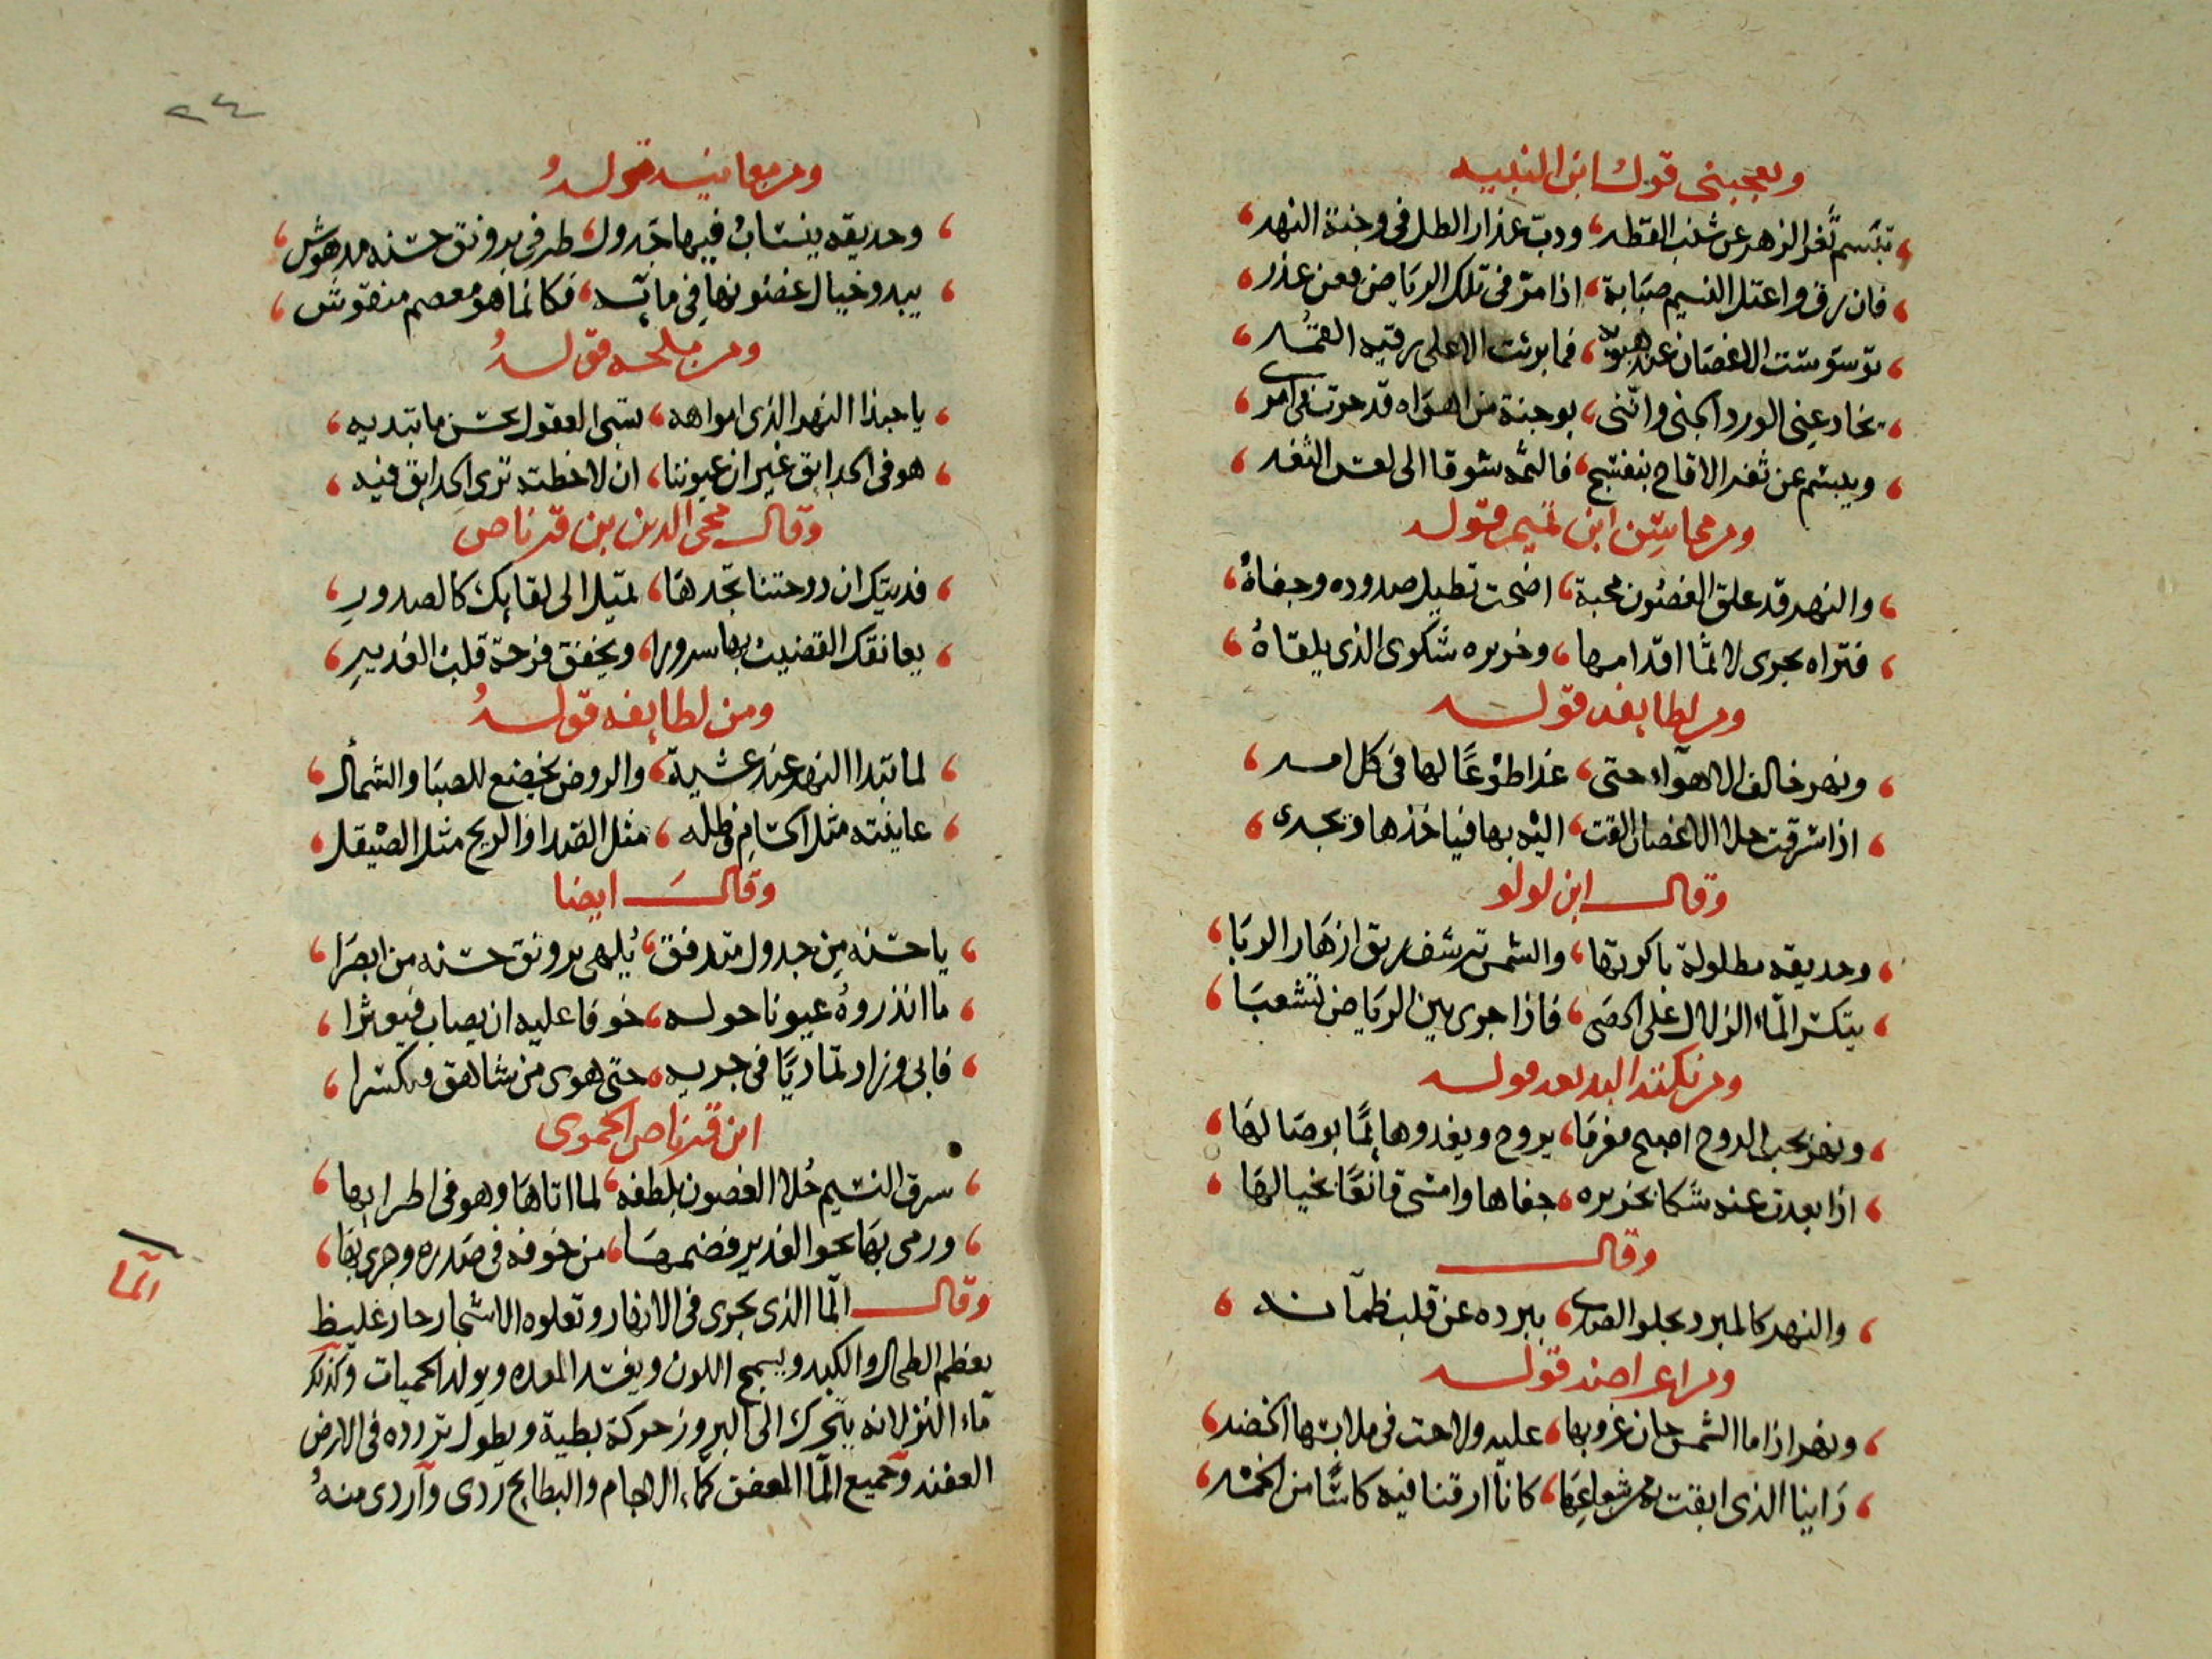 ويعجبنى قول ابن النبيه
تبسم ثغر الزهر عن شنب القطر ودب عذار الطل فى وجنة النهر
فان رق واعتل النسيم صبابة اذا مر فى تلك الرياض فعن عذر
توسوست الاغصان عند هبوبه فما برئت الا على رقية القمر
يخادعنى الورد الجنى وانثنى بوجنة من اهواه قد حرت فى امرى
ويبسم عن ثغر الاقاح بنفسج فالثمه شوقا الى لعس الثغر
ومن محاسن ابن تميم قوله
والنهر قد علق الغصون محبة اضحت تطيل صدوده وجفاهُ
فتراه يجرى لاثما اقدامها وخريره شكوى الذى يلقاهُ
ومن لطايفه قوله
ونهر خالف الاهوآء حتى غدا طوعًا لها فى كل امر
اذا سرقت حلا الاغصان القت اليه بها فياخذها ويجرى
وقال ابن لولو
وحديقة مطلولة باكرتها والشمس ترشف ريق ازهار الربا
يتكسر المآء الزلال على الحصى فاذا جرى بين الرياض تشعبا
ومن نكته البديعه قوله
ونهر بحب الدوح اصبح مغرما يروح ويغدو هايمًا بوصالها
اذا بعدت عنه شكا بخريره جفاها وامسى قانعًا بخيالها
وقال
والنهر كالمبرد يجلو الصدى ببرده عن قلب ظمآنه
ومن اغراضه قوله
ونهر اذا ما الشمس حان غروبها عليه ولاحت فى ملابسها الخضر
راينا الذى ابقت به من شعاعها كانا ارقنا فيه كاسًا من الخمر
٢٤
ومن معانيه قوله
وحديقه ينساب فيها جدول طرفى برونق حسنه مدهوش
يبدو خيال غصونها فى مآئه فكانما هو معصم منقوش
ومن ملحه قوله
يا حبذا النهر الذى امواهه تسبى العقول بحسن ما تبديه
هو فى الحدايق غير ان عيوننا ان لاحظته ترى الحدايق فيه
وقال محى الدين بن قرناص
فديتك ان دوحتنا تجدها تميل الى لقايك كالصدور
يعانقك القضيب بها سرورا ويخفق فرحة قلب الغدير
ومن لطايفه قوله
لما تبدا النهر عند عشية والروض يخضع للصبا والشمأل
عاينته مثل الحسام وظله مثل الصدا والريح مثل الصيقل
وقال ايضا
يا حسنه من جدول متدفق يُلهى برونق حسنه من ابصرا
ما انذروهُ عيونا حوله خوفا عليه ان يصاب فيعثرا
فابى وزاد تماديًا فى جريه حتى هوى من شاهق فتكسرا
ابن قرناص الحموى
سرق النسيم حُلا الغصون بلطفه لما اتاها وهو فى اطرابها
ورمى بها نحو الغدير فضمها من خوفه فى صدره وجرى بها
وقال المآ الذى يجرى فى الانهار وتعلوه الاشجار حار غليظ
يعظم الطحال والكبد ويسمج اللون ويفسد المعده ويولد الحميات وكذلك
مآء النز لانه يتحرك الى البروز حركة بطية ويطول تردده فى الارض
العفنه وجميع المآ المعفن كمآء الاجام والبطايح ردى واردى منهُ
المآ